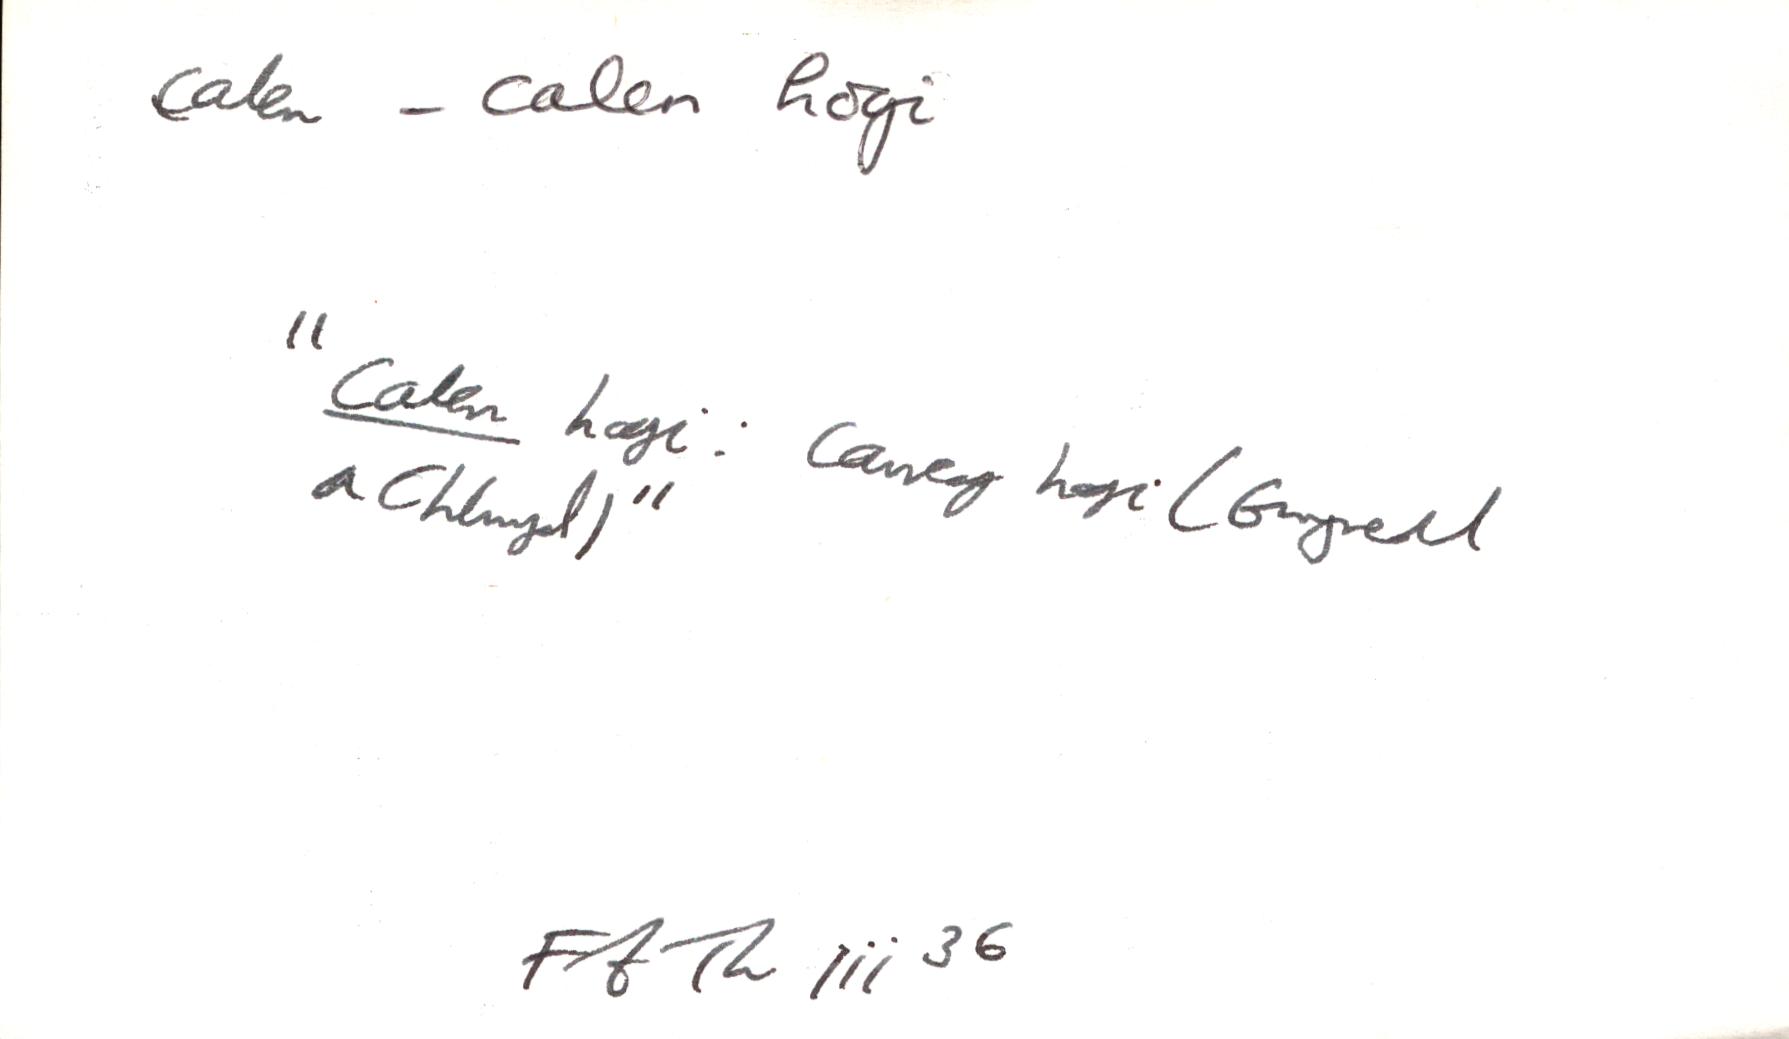 calen - calen hogi
"Calen hogi: Carreg hogi (Gwynedd
a Chlwyd)"
Ff Th iii 36